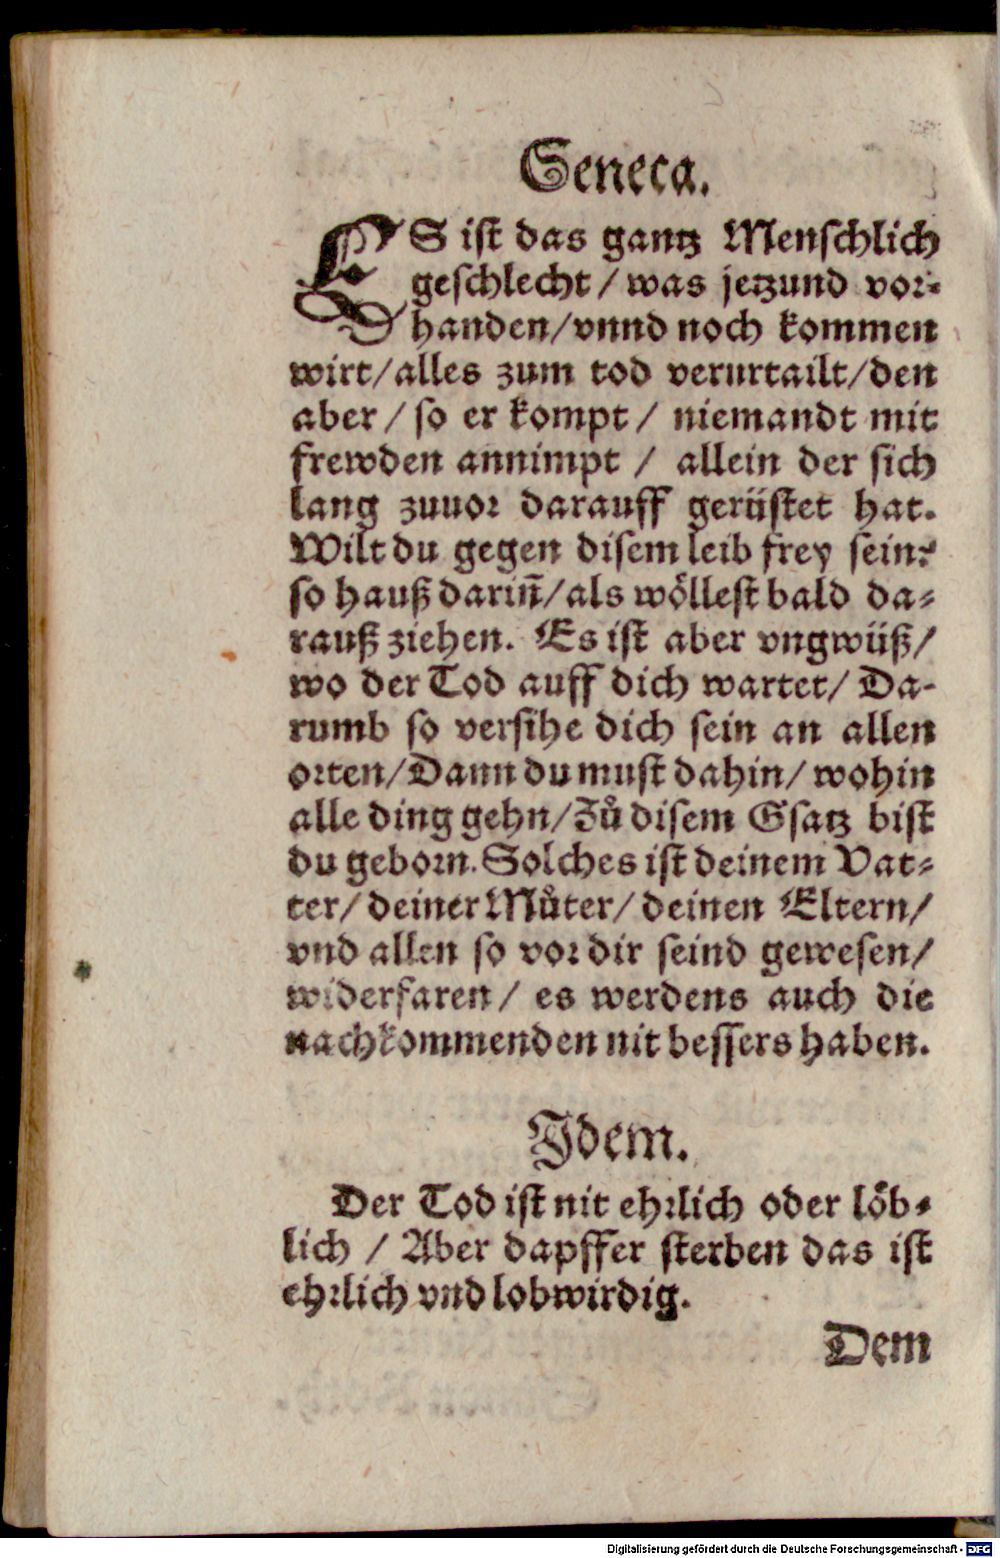 Seneca.
ES ist das gantz Menschlich
geschlecht / was jetzund vor-
handen/vnnd noch kommen
wirt/alles zum tod verurtailt/den
aber / so er kompt / niemandt mit
frewden annimpt / allein der sich
lang zuuor darauff gerüstet hat.
Wilt du gegen disem leib frey sein?
so hauß darin̄/als wöllest bald da-
rauß ziehen. Es ist aber vngwüß/
wo der Tod auff dich wartet/ Da-
rumb so versihe dich sein an allen
orten/Dann du must dahin/ wohin
alle ding gehn/Zů disem Gsatz bist
du geborn. Solches ist deinem Vat-
ter/ deiner Můter/ deinen Eltern/
vnd allen so vor dir seind gewesen/
widerfaren / es werdens auch die
nachkommenden nit bessers haben.
Idem.
Der Tod ist nit ehrlich oder löb-
lich / Aber dapffer sterben das ist
ehrlich vnd lobwirdig.
Dem
Digitalisierung gefördert durch die Deutsche Forschungsgemeinschaft - DFG